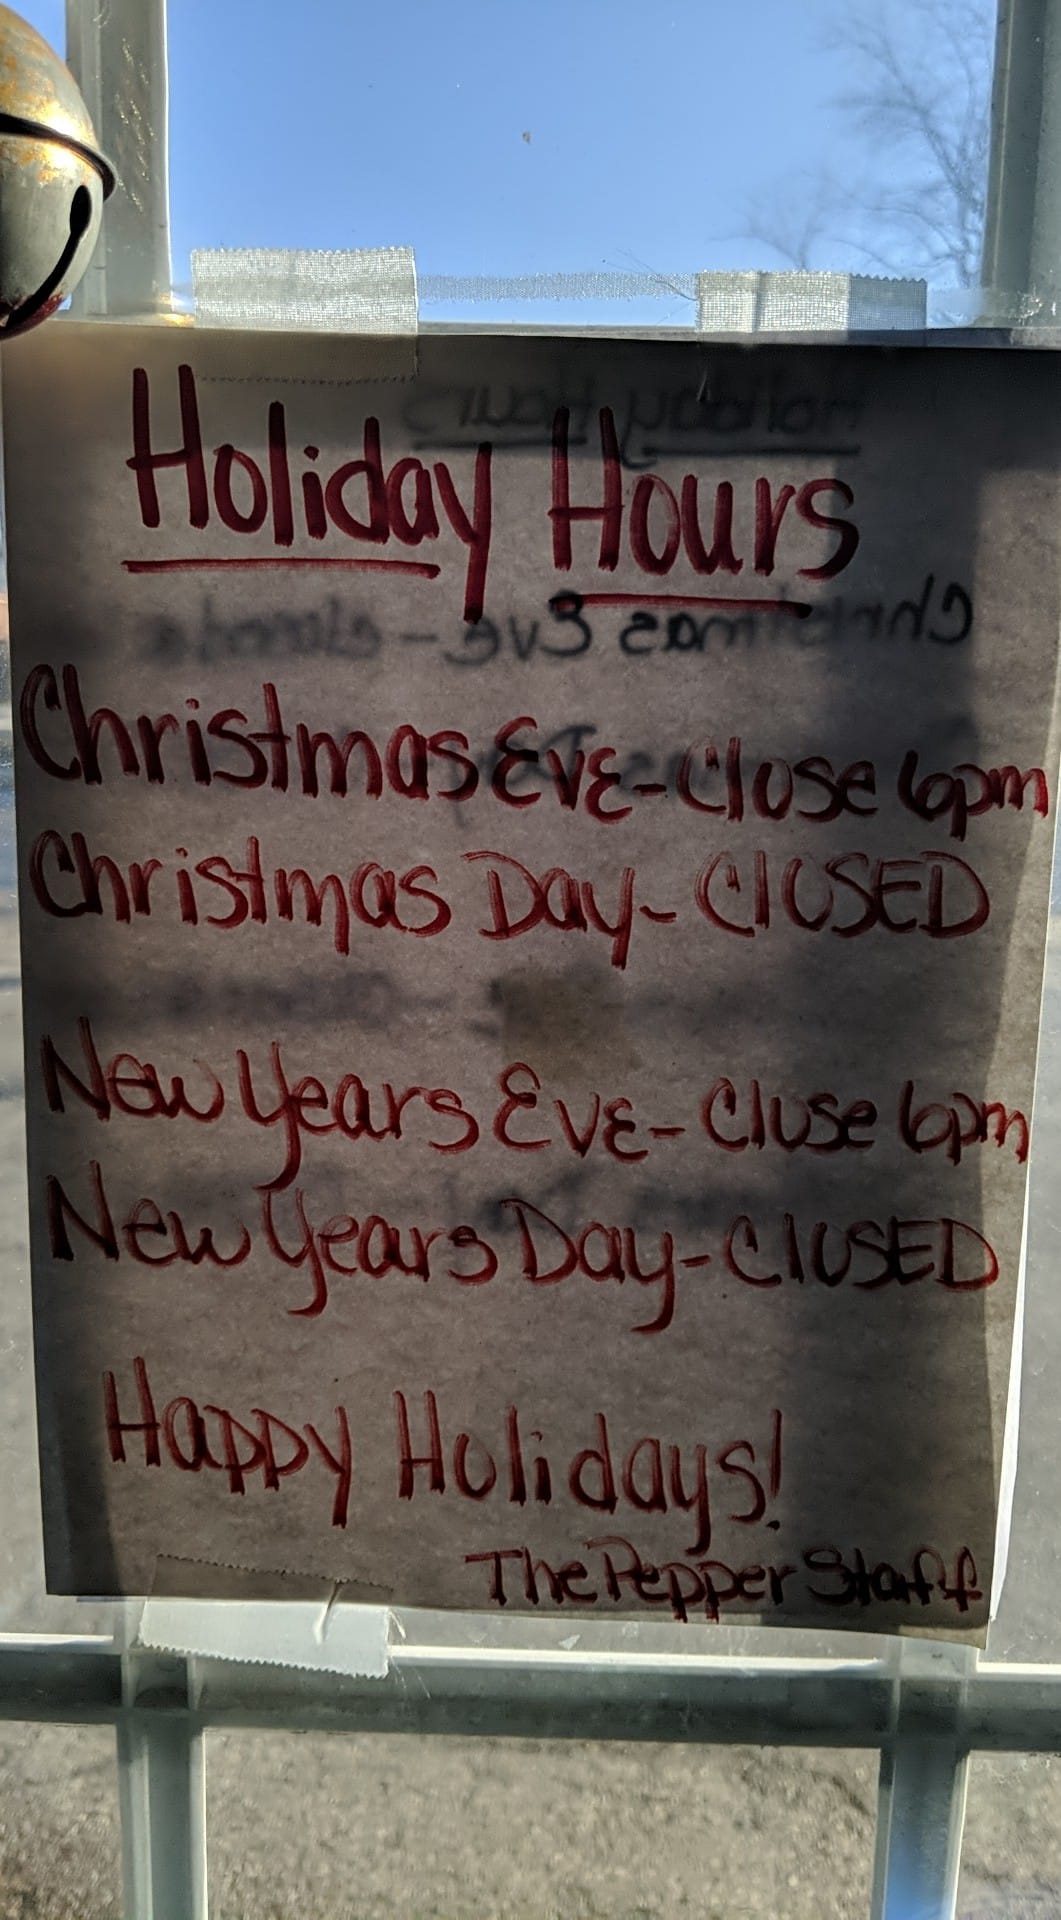 Holiday Hours
Christmas Eve - Close 6pm
Christmas Day - ClOSED
New Years Eve - Close 6pm
New Years Day - ClOSED
Happy Holidays!
The Pepper Staff
Holiday Hours
Christmas Eve -